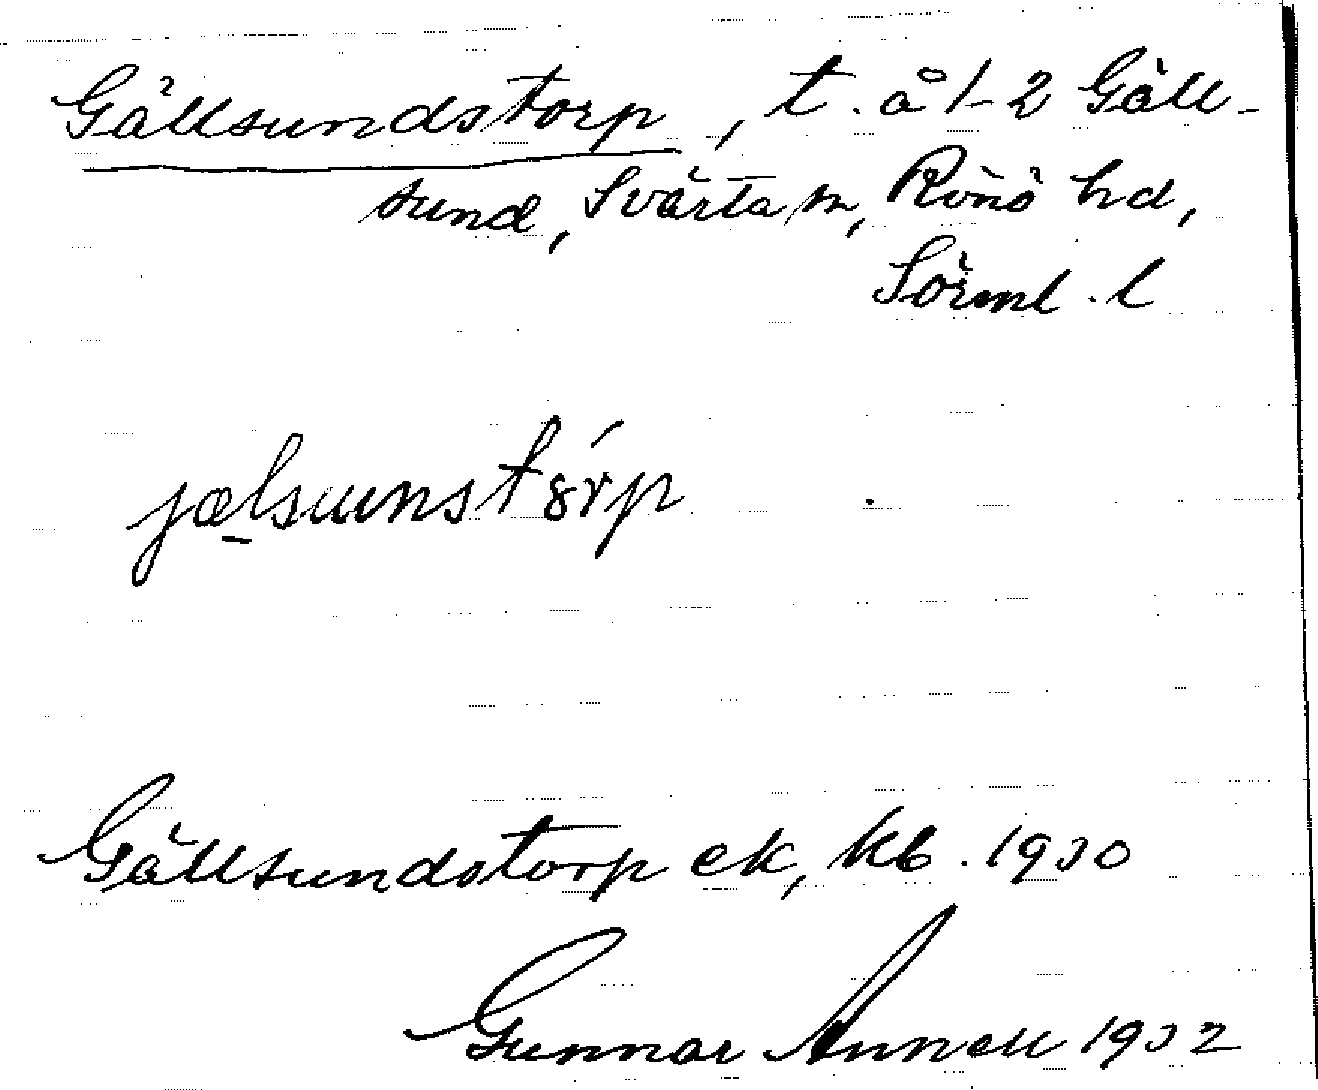 Gällsundstorp, t. å 1-2 Gäll-
sund, Svärta sn, Rönö hd,
Sörml. l
jælsunstȣ́rp
Gällsundstorp ek, kb. 1930
Gunnar Annell 1932